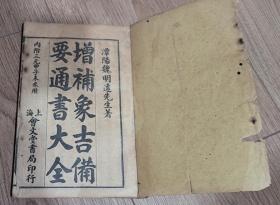 潭陽魏明遠先生著
增補象吉備
要通書大全
內附三元甲子未來曆
上海會文堂書局印行